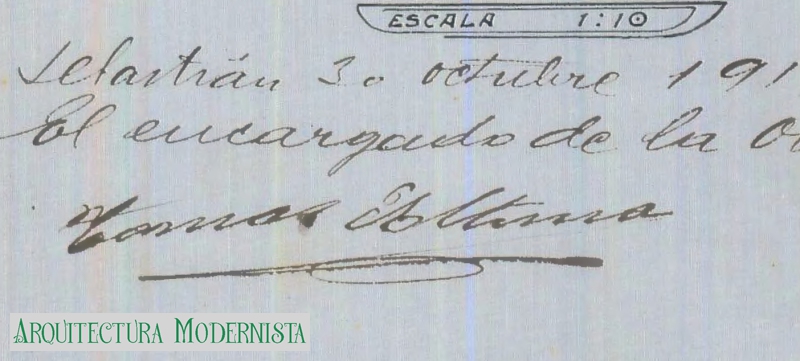 ESCALA 1:10
Sebastián 30 octubre 191
El encargado de la O
Tomas Altuna
ARQUITECTURA MODERNISTA